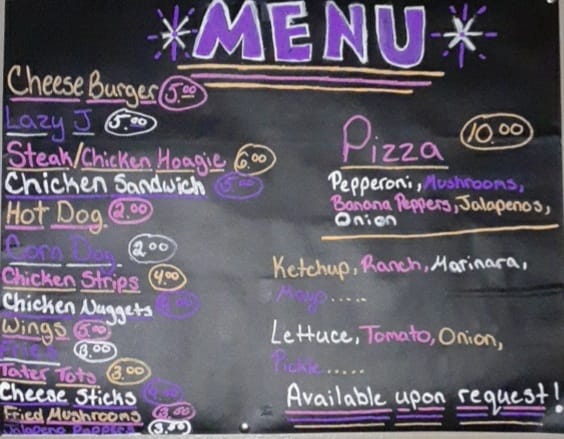 MENU
Cheese Burger 5.00
Lazy J 5.00
Steak/Chicken Hoagie 6.00
Chicken Sandwich 5.00
Hot Dog 2.00
Corn Dog 2.00
Chicken Strips 4.00
Chicken Nuggets
Wings 5.00
Fries 3.00
Tater Tots 3.00
Cheese Sticks
Fried Mushrooms
Jalapeno Poppers 3.00
Pizza 10.00
Pepperoni, Mushrooms,
Banana Peppers, Jalapenos,
Onion
Ketchup, Ranch, Marinara,
Mayo.....
Lettuce, Tomato, Onion,
Pickle.....
Available upon request!